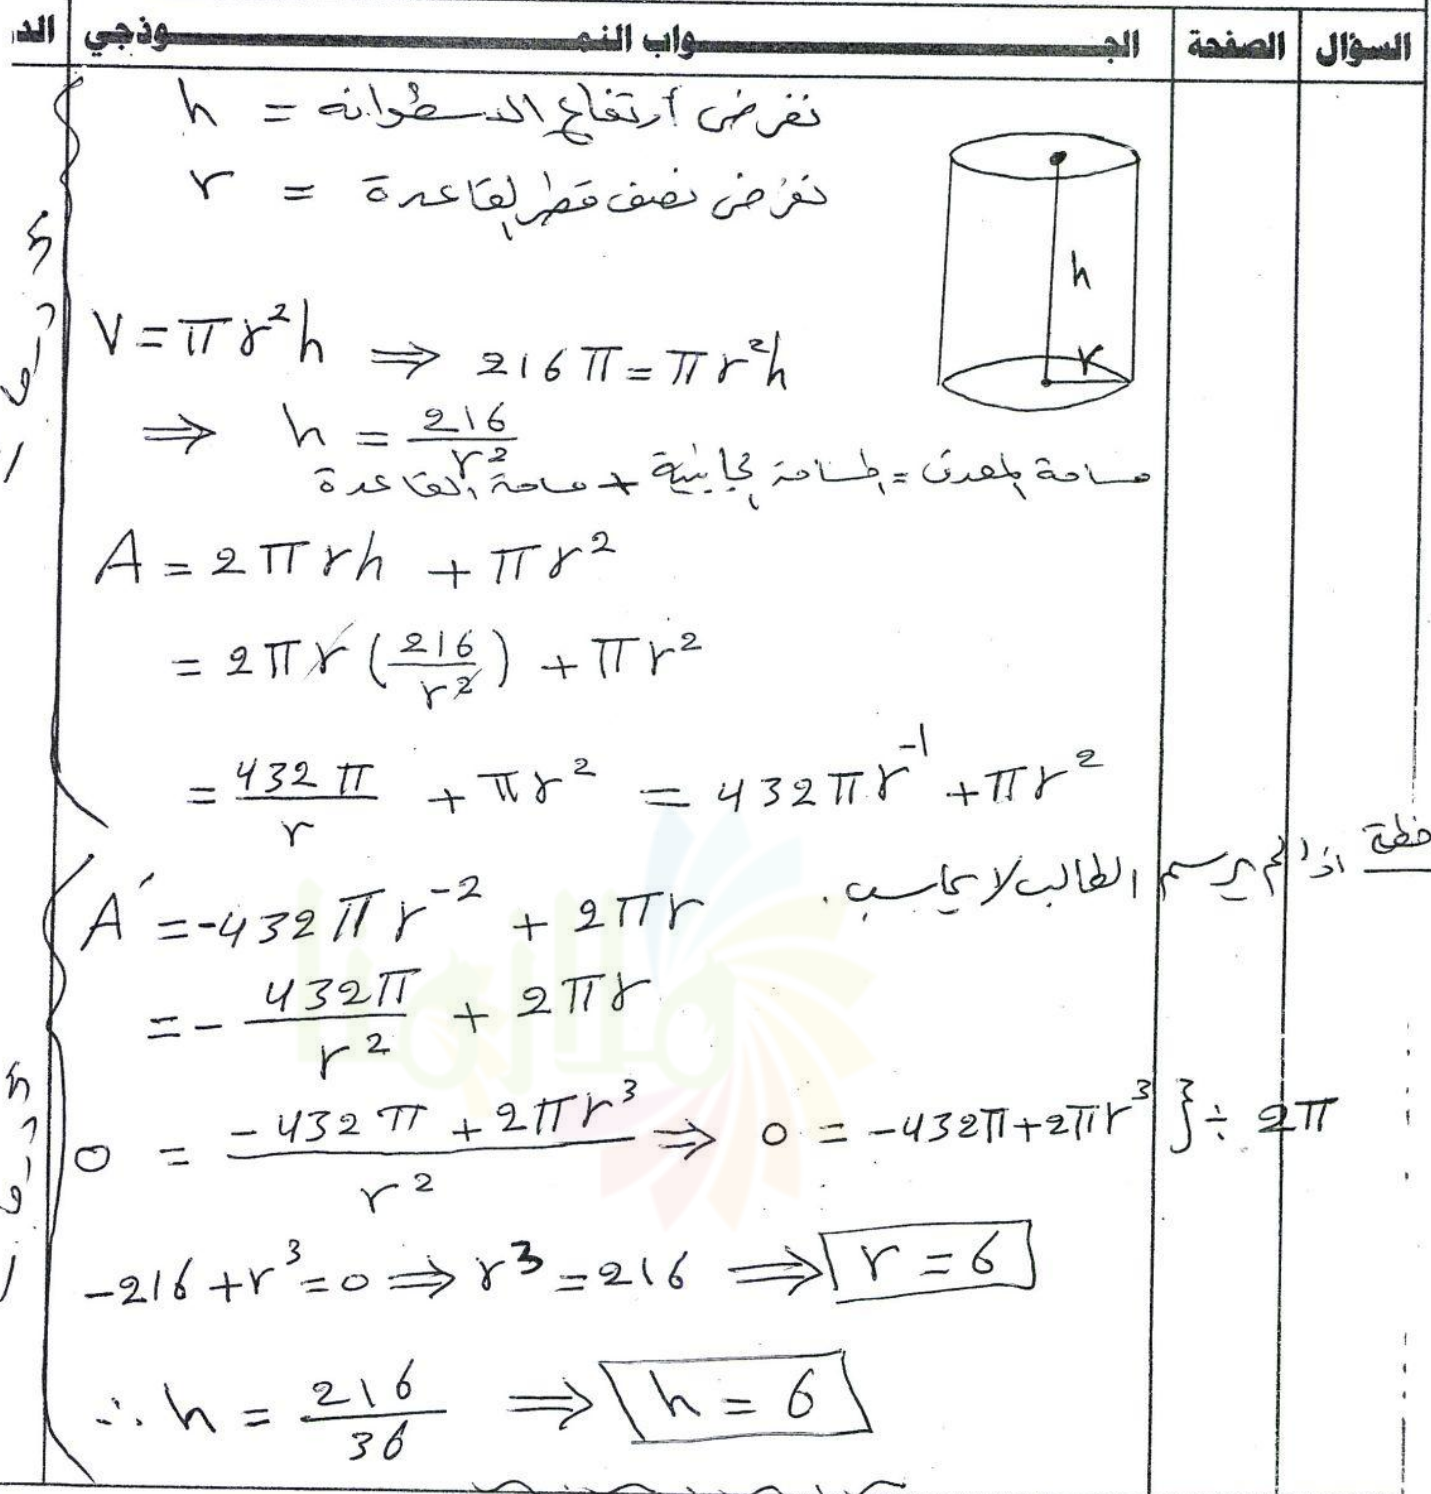 السؤال الصفحة الجـــواب النمـــوذجي الد
نفرض ارتفاع الاسطوانه = h
نفرض نصف قطر القاعدة = r
h
r
V = πr²h ⇒ 216π = πr²h
⇒ h = 216/r²
مساحة المعدن = المساحة الجانبية + مساحة القاعدة
A = 2πrh + πr²
= 2πr (216/r²) + πr²
= 432π/r + πr² = 432πr⁻¹ + πr²
اذا لم يرسم الطالب لا يحاسب.
A′ = -432πr⁻² + 2πr
= - 432π/r² + 2πr
0 = (-432π + 2πr³)/r² ⇒ 0 = -432π + 2πr³ } ÷ 2π
-216 + r³ = 0 ⇒ r³ = 216 ⇒ r = 6
∴ h = 216/36 ⇒ h = 6
ملازمنا